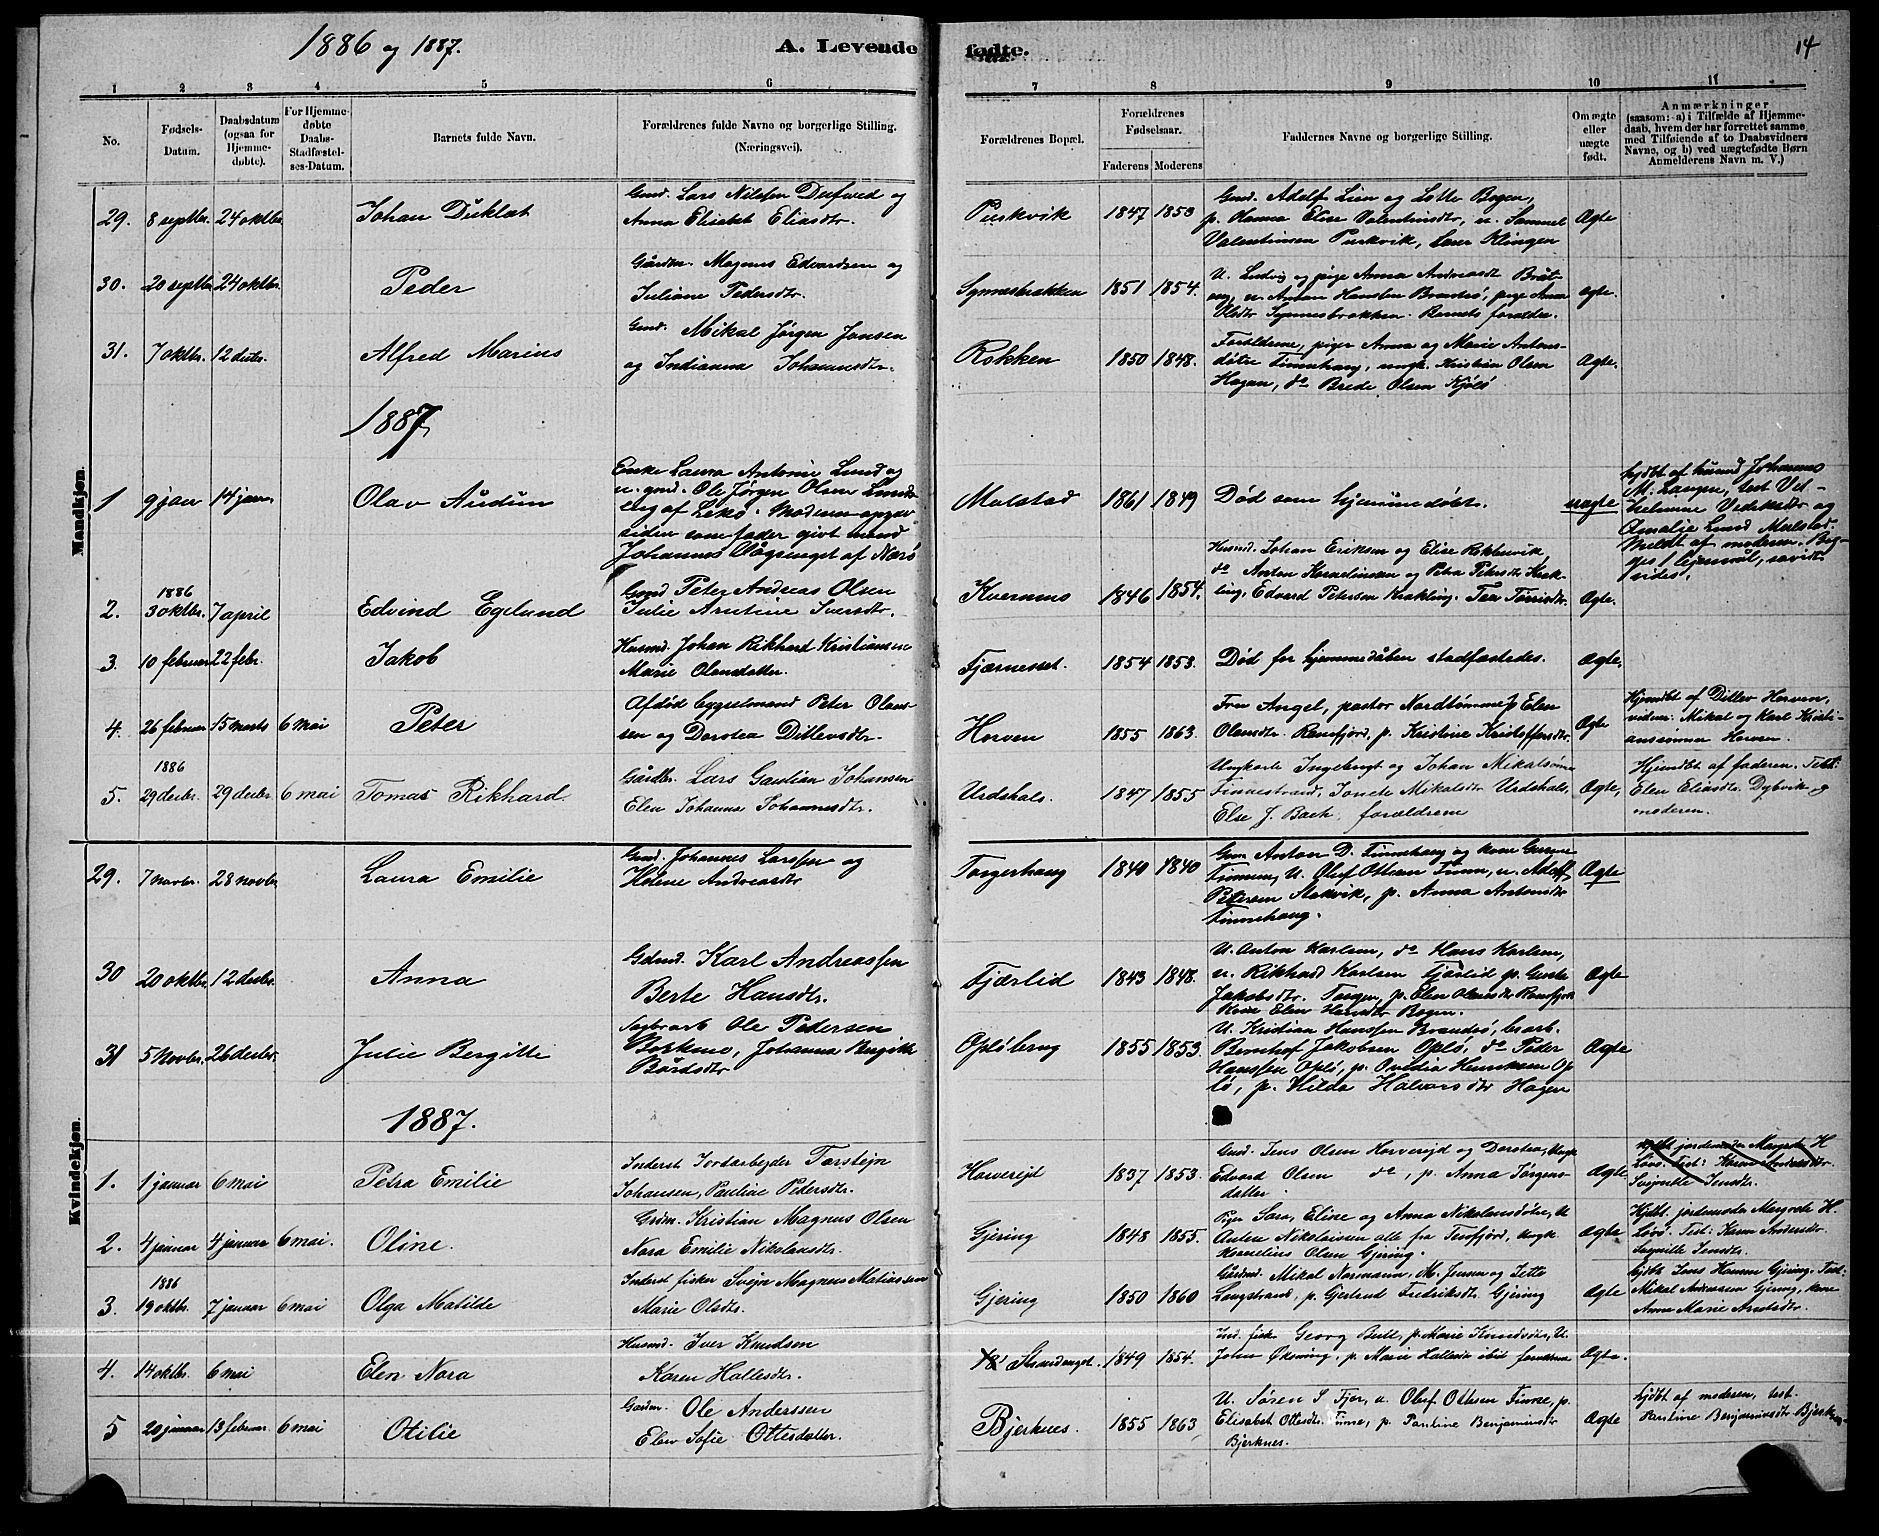 1886 og 1887.
A. Levende fødte.
14
1 2 3 4 5 6 7 8 9 10 11
No.
Fødsels-
Datum.
Daabsdatum
(ogsaa for
Hjemme-
døbte).
For Hjemme-
døbte
Daabs-
Stadfæstel-
ses-Datum.
Barnets fulde Navn.
Forældrenes fulde Navne og borgerlige Stilling.
(Næringsvei).
Forældrenes Bopæl.
Forældrenes
Fødselsaar.
Faderens Moderens
Faddernes Navne og borgerlige Stilling.
Om ægte
eller
uægte
født.
Anmærkninger
(saasom: a) i Tilfælde af Hjemme-
daab, hvem der har forrettet samme
med Tilføiende af to Daabsvidners
Navne, og b) ved uægtefødte Børn
Anmelderens Navn m. V.)
Mandkjøn.
29. 8 septbr. 24 oktbr. Johan
Gmd. Lars Nilssen og
Anna Elisabet Eliasdtr.
Purkvik 1847 1850
Gmd. Adolf Lien og Lotte Bogen,
p. Hanna Elise Valentinsdtr, u. Samuel
Valentinsen Purkvik, Klingen
Ægte
30. 20 septbr. 24 oktbr. Peder
Gårdbr. Magnus Edvardsen og
Juliane Pedersdtr.
1851 1854.
U. Ludvig og pige Anna Andreasdt
u. Hansen pige Anna
Barnets forældre.
ægte.
31. 7 oktbr. 12 decbr. Alfred Marius
Gmd. Mikal Jørgen Jonsen
og Indianna Johannesdtr.
Rokken 1850 1848.
Forældrene, piger Anna og Marie Antons-
døtre Finnehaug, ungk. Kristian Olsen
Hagen, do Brede Olsen Kjølsø
Ægte.
1887
1 9 jan 14 jan. Olav Audun
Enke Laura Antonie Lund og
u. gmd. Ole Jørgen Olsen
af Lekø. Moderen opgav
siden som fader givt mand
Johannes af Nærø
Malstad 1861 1849 Død som hjemmedøbt. uægte
hjdbt af husmd Johannes
M. Langen, test Vil-
helmine og
Amalie Lund Malstad.
Meldt af moderen.
lejermål, savidt
vides.
2. 1886
3 oktbr. 7 april Edvind Egelund
Gmd Peter Andreas Olsen
Julie Arntine Iversdtr.
Kvernmo 1846 1854.
Husmd. Johan Eriksen og Elise
do Anton Kornelinsen og Petra Petersdtr Krak-
ling, Edvard Petersen Krakling.
Ægte.
3. 10 februar 22 febr. Jakob
Husmd. Johan Rikhard Kristiansen
Marie Olausdatter.
Fjærnesset. 1854 1853. Død før hjemmedåben stadfæstedes. Ægte.
4. 26 februar 15 marts 6 mai Peter
Afdød Peter Olaus-
sen og Dorotea Ditlevsdtr.
Horven 1855 1863.
Fru Angel, pastor Nordtømme p Elen
Olausdtr. Ramfjord, p. Kristine Kristoffersdtr.
Ægte
Hjemdbt af Ditlev Horven,
vidner: Mikal og Karl Kristi-
anssønner Horven.
5. 1886
29 decbr. 29 decbr. 6 mai Tomas Rikhard
Gårdbr. Lars Gautian Johansen
Elen Johanna Johannesdtr.
Urdshals. 1847 1855
Ungkarle Ingebrigt og Johan Mikalsønner
Finnestrand, Mikalsdtr Urdshals,
Else J. Bach, forældrene
Ægte,
Hjemdbt af faderen. Test:
Elen Eliasdtr. Dybvik og
moderen.
Kvindekjøn.
29. 7 novbr. 28 novbr. Laura Emilie
Gmd. Johannes Larssen og
Helene Andreasdtr
Torgerhaug 1840 1840
Gm Anton D. Finnehaug og kone
U. Oluf Ottesen Finne, u. Adolf
Petersen Stokvik, p. Anna Antonsdtr
Finnehaug.
Ægte
30 20 oktbr. 12 decbr. Anna
Gdmd. Karl Andreassen
Berte Hansdtr.
Fjærlid 1843 1848.
U. Anton Karlsen, do Hans Karlsen,
u. Rikhard Karlsen Fjærlid p.
Jakobsdtr. p. Elen
Kone Elen Hansdtr Bogen.
Ægte
31 5 Novbr. 26 decbr. Julie Bergitte
Ole Pedersen
Johanna Bergitte
Bårdsdtr
Opløbrug 1855 1853.
U. Kristian Hanssen brarb.
Bernhof Jakobsen Oplø, do Peder
Hanssen Oplø, p. Ovedia Henriksen Op
lø, p. Hilda Halvorsdtr Hagen
Ægte
1887.
1. 1 januar 6 mai Petra Emilie
Inderst Jordarbejder Torstejn
Johansen, Pauline Pedersdtr.
Horverejd 1837 1853.
Gmd. Jens Olsen Horverejd og Dorotea, Ungk
Edvard Olsen do, p. Anna Jørgens-
datter.
Ægte
Hjdbt jordemoder Margrete H
Løvø. Test: Karen Andersdtr.
Jensdtr.
2. 4 januar 4 januar 6 mai. Oline.
Grdm. Kristian Magnus Olsen
Nora Emilie Nikolausdtr.
Gjering 1848 1855.
Piger Sara, Eline og Anna Nikolausdøtre, U
Anton Nikolaisen alle fra Terfjord, Ungk
Kornelius Olsen Gjering.
Ægte
Hjdbt. jordemoder Margrete H.
Løvø. Test: Karen Andersdtr
Jensdtr.
3. 1886
19 oktbr. 7 januar 6 mai Olga Matilde
Inderst fisker Svejn Magnus Matiassen
Marie Olsdtr.
Gjering 1850 1860
Gårdmd. Mikal Normann, M. Jensen og Jette
Langstrand, p. Gjertrud Fredriksdtr. Gjering
Ægte
hjdbt Jens Hansen Gjering. Test:
Mikal Andreassen Gjering, kone
Anna Marie Arntsdtr.
4. 14 oktbr. 6 mai Elen Nora
Husmd. Iver Knudsen
Karen Hallesdtr.
Strandenget. 1849 1854.
Ind. fisk. Georg Bull, p. Marie Knudsdtr, U.
Johan Øksning, p. Marie Hallesdtr ibid forældrene
Ægte.
5 20 januar 13 februar. 6 mai Otilie
Gårdm. Ole Anderssen
Elen Sofie Ottesdatter.
Bjerknes. 1855 1863
U. Søren S Fjær, u. Oluf Ottesen Finne, p.
Elisabet Ottesdtr. Finne, p. Pauline Benjaminsdtr
Bjerknes.
Ægte
hjdbt af moderen, test.
Pauline Benjaminsdtr Bjerknes